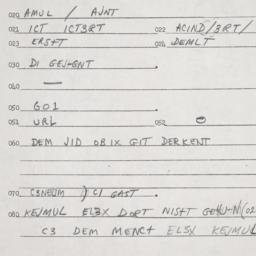 020 AMUL / AJNT
021 ICT ICT3RT 022 ACIND/3RT/
023 ERSTT 024 DEMLT
030 DI
040 —
050 GO1
051 URL 052 O
060 DEM JID OB IX GIT DERKENT
070 C3NEUM C1 GAST.
080 KEJMUL EL3X DORT NIST
C3 DEM MENCT ELSX KEJMUL